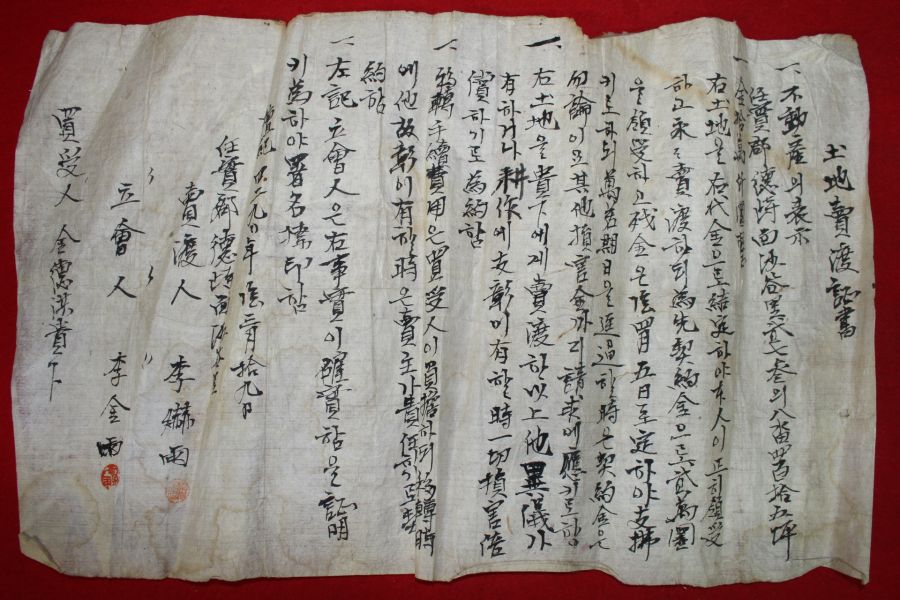 土地賣渡証書
一、不動産의表示
任實郡德峙面沙谷里貳七叁의八畓四百拾五坪
一、金拾
右土地을右代金으로結定하야本人이正히領受
하고永々賣渡하되爲先契約金으로貳萬圜
을領受하고殘金은陰四月五日로定하야支拂
키로하되萬若期日을經過할時은契約金은
勿論이요其他損害金까지請求에應키로함
一、右土地을貴下에게賣渡한以上他異議가
有하거나耕作에支彰이有할時一切損害倍
償하기로爲約함
一、移轉手續費用은買受人이負擔하되移轉時
에他故彰이有할時은賣主가責任
約함
一、左記立會人은右事實이確實함을証明
키爲하야署名捺印함
檀紀四二九 年陰三月拾九日
任實郡德峙面
賣渡人 李 雨
立會人 李金雨
買受人 金 貴下